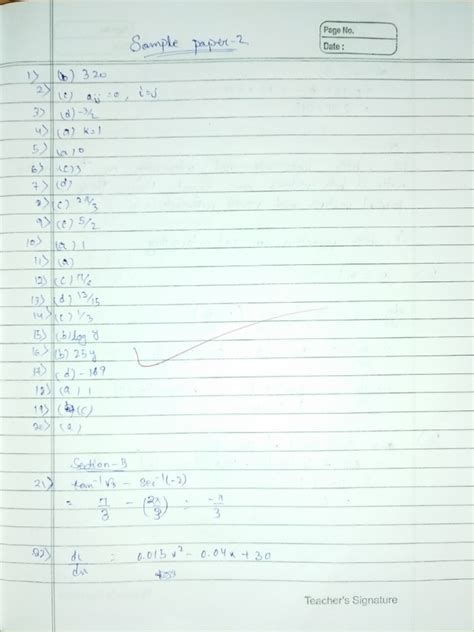 Page No.
Date :
Sample paper-2
1) (b) 320
2) (c) aij = 0, i=j
3) (d) -3/2
4) (a) k=1
5) 
6) (c) 3
7) (d)
8) (c) 2π/3
9) (c) 5/2
10) (a) 1
11) (a)
12) (c) π/6
13) (d) 13/15
14) (c) 1/3
15) (b) log
16) (b) 25y
17) (d)
18) (a) 1
19) (c)
20) (a)
Section-B
21) tan⁻¹√3 - sec⁻¹(-2)
= π/3 - (2π/3) = -π/3
22) dc/dx = 0.015x² - 0.04x + 30
Teacher's Signature